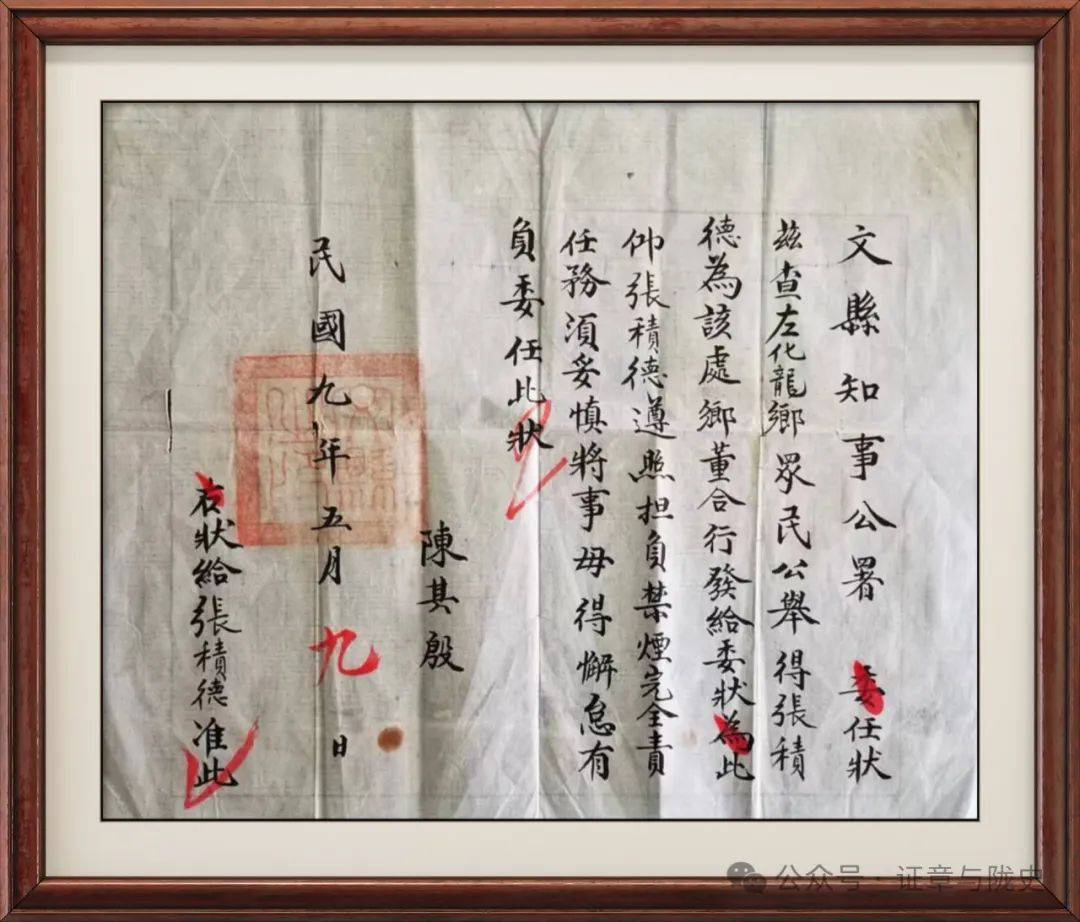 文縣知事公署 委任狀
茲查左化龍鄉眾民公舉得張積
德為該處鄉董合行發給委狀為此
仰張積德遵照担負禁煙完全責
任務須妥慎將事毋得懈怠有
負委任此狀
陳其殷
民國九年五月九日
右狀給張積德准此
公众号·证章与陇史